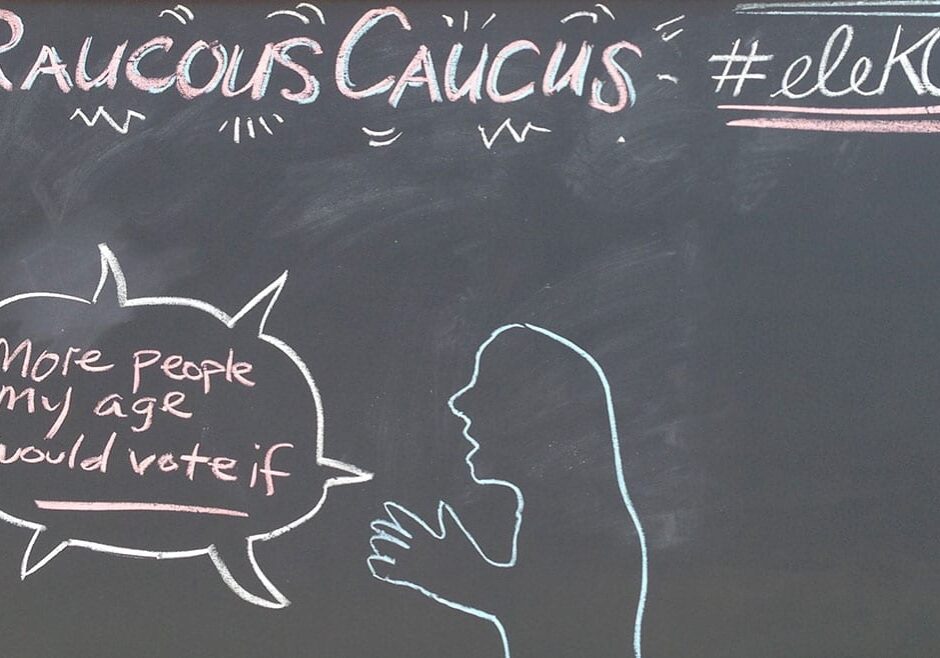 RAUCOUS CAUCUS
#eleKC
More people
my age
would vote if